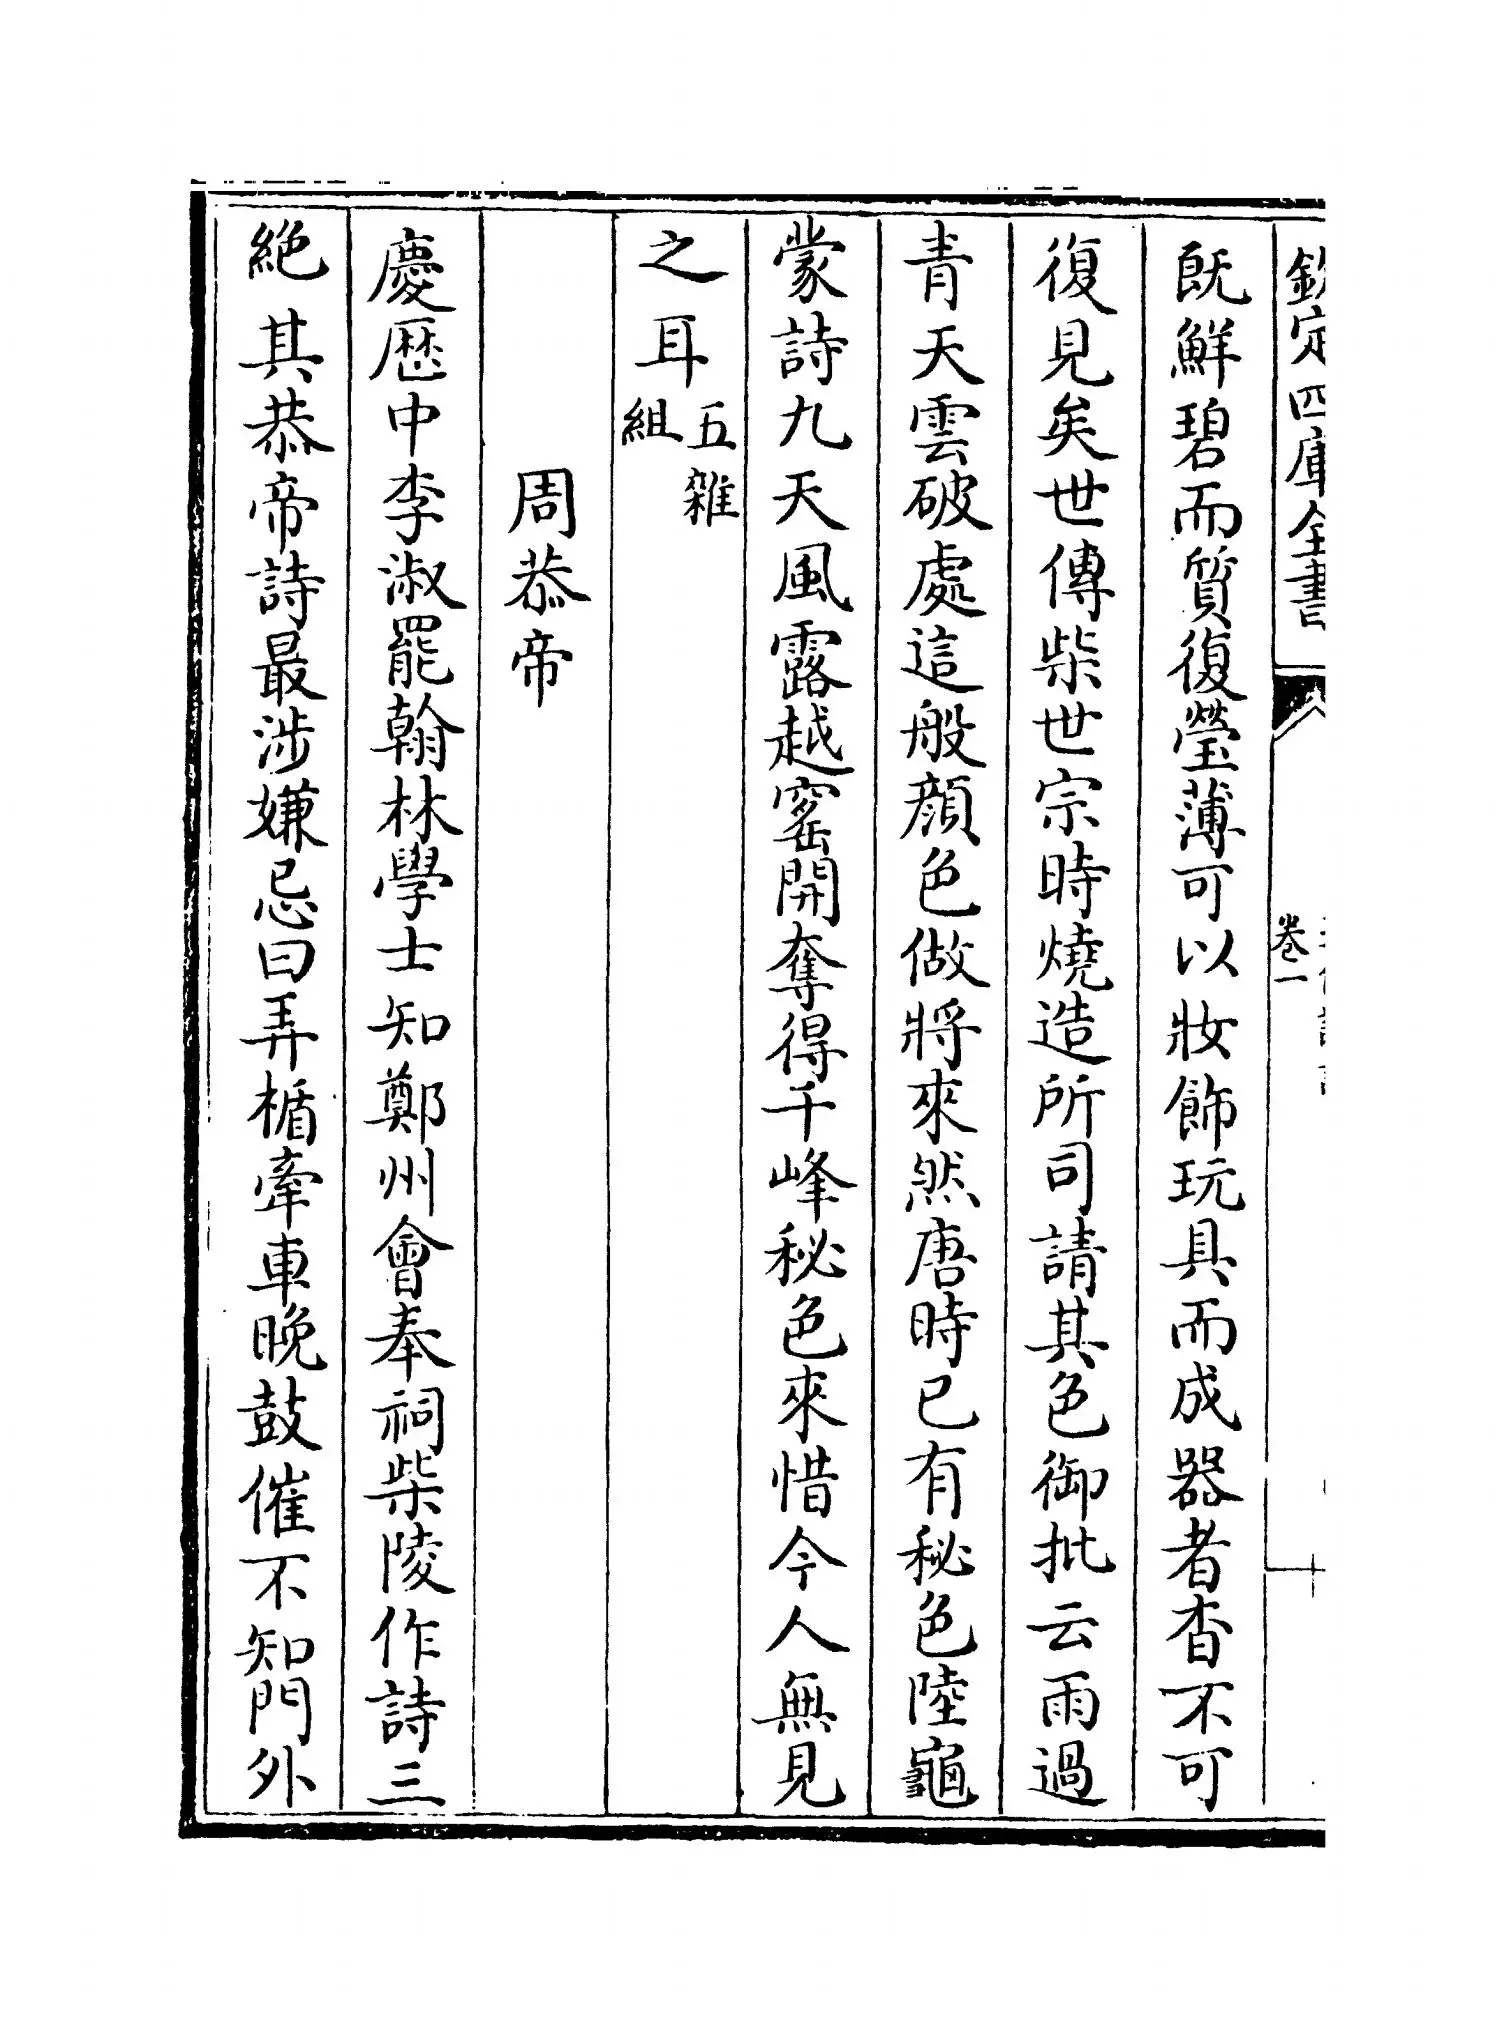 欽定四庫全書
卷一
既鮮碧而質復瑩薄可以妝飾玩具而成器者杳不可
復見矣世傳柴世宗時燒造所司請其色御批云雨過
青天雲破處這般顔色做將來然唐時已有秘色陸龜
蒙詩九天風露越窰開奪得千峰秘色來惜今人無見
之耳五雜組
周恭帝
慶歷中李淑罷翰林學士知鄭州會奉祠柴陵作詩三
絶其恭帝詩最涉嫌忌曰弄楯牽車晚鼓催不知門外